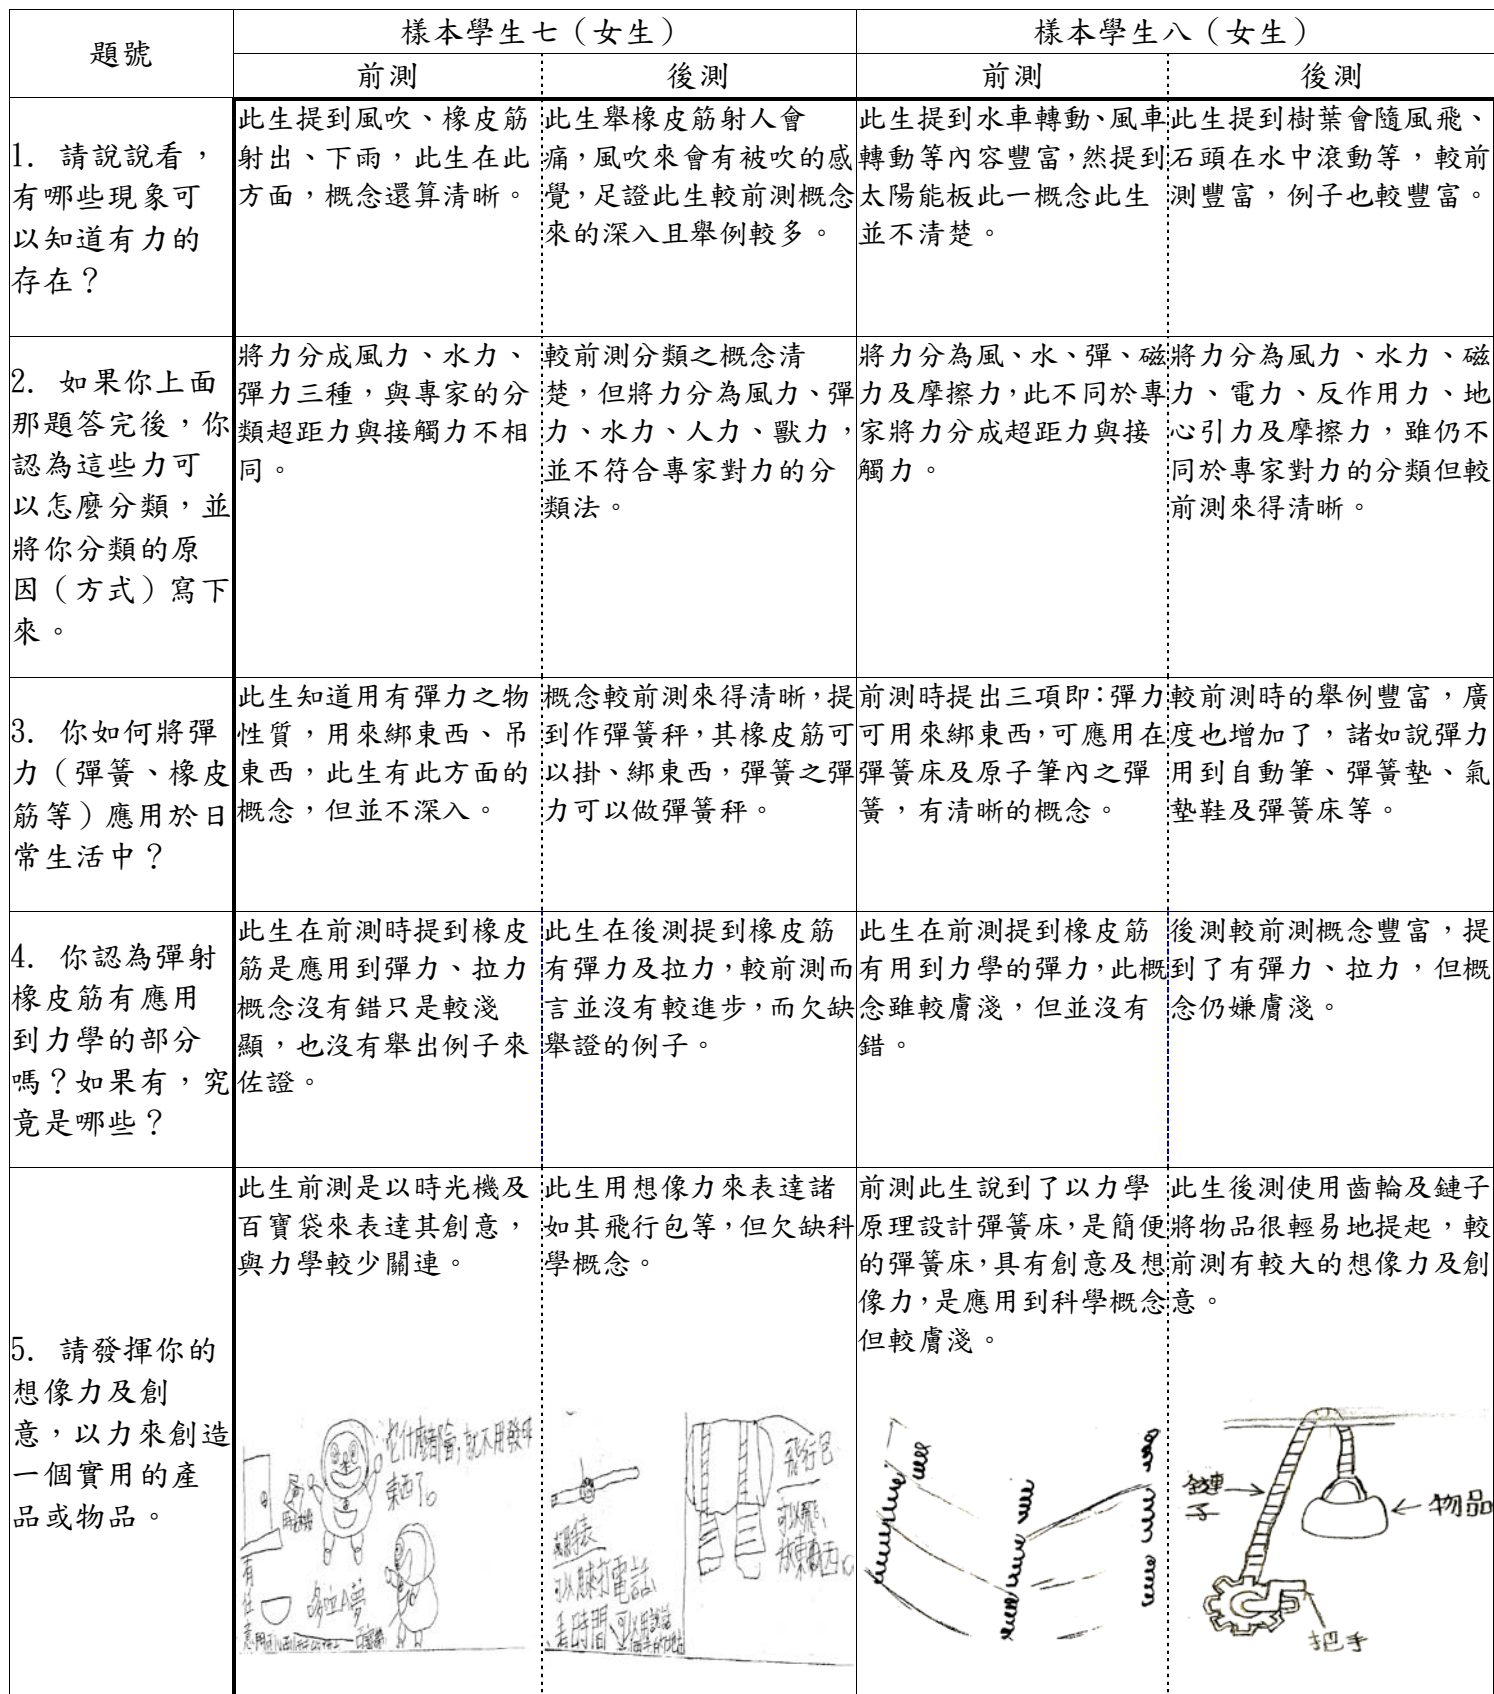 題號
樣本學生七（女生）
樣本學生八（女生）
前測
後測
前測
後測
1. 請說說看，
有哪些現象可
以知道有力的
存在？
此生提到風吹、橡皮筋
射出、下雨，此生在此
方面，概念還算清晰。
此生舉橡皮筋射人會
痛，風吹來會有被吹的感
覺，足證此生較前測概念
來的深入且舉例較多。
此生提到水車轉動、風車
轉動等內容豐富，然提到
太陽能板此一概念此生
並不清楚。
此生提到樹葉會隨風飛、
石頭在水中滾動等，較前
測豐富，例子也較豐富。
2. 如果你上面
那題答完後，你
認為這些力可
以怎麼分類，並
將你分類的原
因（方式）寫下
來。
將力分成風力、水力、
彈力三種，與專家的分
類超距力與接觸力不相
同。
較前測分類之概念清
楚，但將力分為風力、彈
力、水力、人力、獸力，
並不符合專家對力的分
類法。
將力分為風、水、彈、磁
力及摩擦力，此不同於專
家將力分成超距力與接
觸力。
將力分為風力、水力、磁
力、電力、反作用力、地
心引力及摩擦力，雖仍不
同於專家對力的分類但較
前測來得清晰。
3. 你如何將彈
力（彈簧、橡皮
筋等）應用於日
常生活中？
此生知道用有彈力之物
性質，用來綁東西、吊
東西，此生有此方面的
概念，但並不深入。
概念較前測來得清晰，提
到作彈簧秤，其橡皮筋可
以掛、綁東西，彈簧之彈
力可以做彈簧秤。
前測時提出三項即：彈力
可用來綁東西，可應用在
彈簧床及原子筆內之彈
簧，有清晰的概念。
較前測時的舉例豐富，廣
度也增加了，諸如說彈力
用到自動筆、彈簧墊、氣
墊鞋及彈簧床等。
4. 你認為彈射
橡皮筋有應用
到力學的部分
嗎？如果有，究
竟是哪些？
此生在前測時提到橡皮
筋是應用到彈力、拉力
概念沒有錯只是較淺
顯，也沒有舉出例子來
佐證。
此生在後測提到橡皮筋
有彈力及拉力，較前測而
言並沒有較進步，而欠缺
舉證的例子。
此生在前測提到橡皮筋
有用到力學的彈力，此概
念雖較膚淺，但並沒有
錯。
後測較前測概念豐富，提
到了有彈力、拉力，但概
念仍嫌膚淺。
5. 請發揮你的
想像力及創
意，以力來創造
一個實用的產
品或物品。
此生前測是以時光機及
百寶袋來表達其創意，
與力學較少關連。
此生用想像力來表達諸
如其飛行包等，但欠缺科
學概念。
前測此生說到了以力學
原理設計彈簧床，是簡便
的彈簧床，具有創意及想
像力，是應用到科學概念
但較膚淺。
此生後測使用齒輪及鏈子
將物品很輕易地提起，較
前測有較大的想像力及創
意。
就不用發明
東西了。
有
任
意
可以用來打電話、
看時間、
飛行包
可以飛、
鏈
子
物品
把手